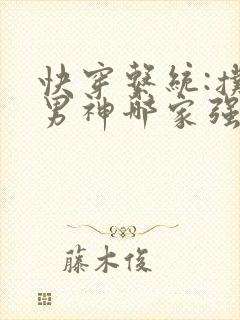 快穿系統:撲
男神哪家强
藤木俊